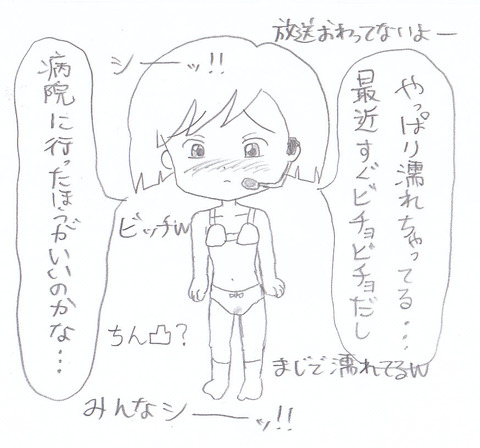 放送おわってないよー
シーッ!!
やっぱり濡れちゃってる・・・・
最近すぐビチョビチョだし
病院に行ったほうがいいのかな・・・
ビッチw
ちん凸?
まじで濡れてるw
みんなシーーッ!!